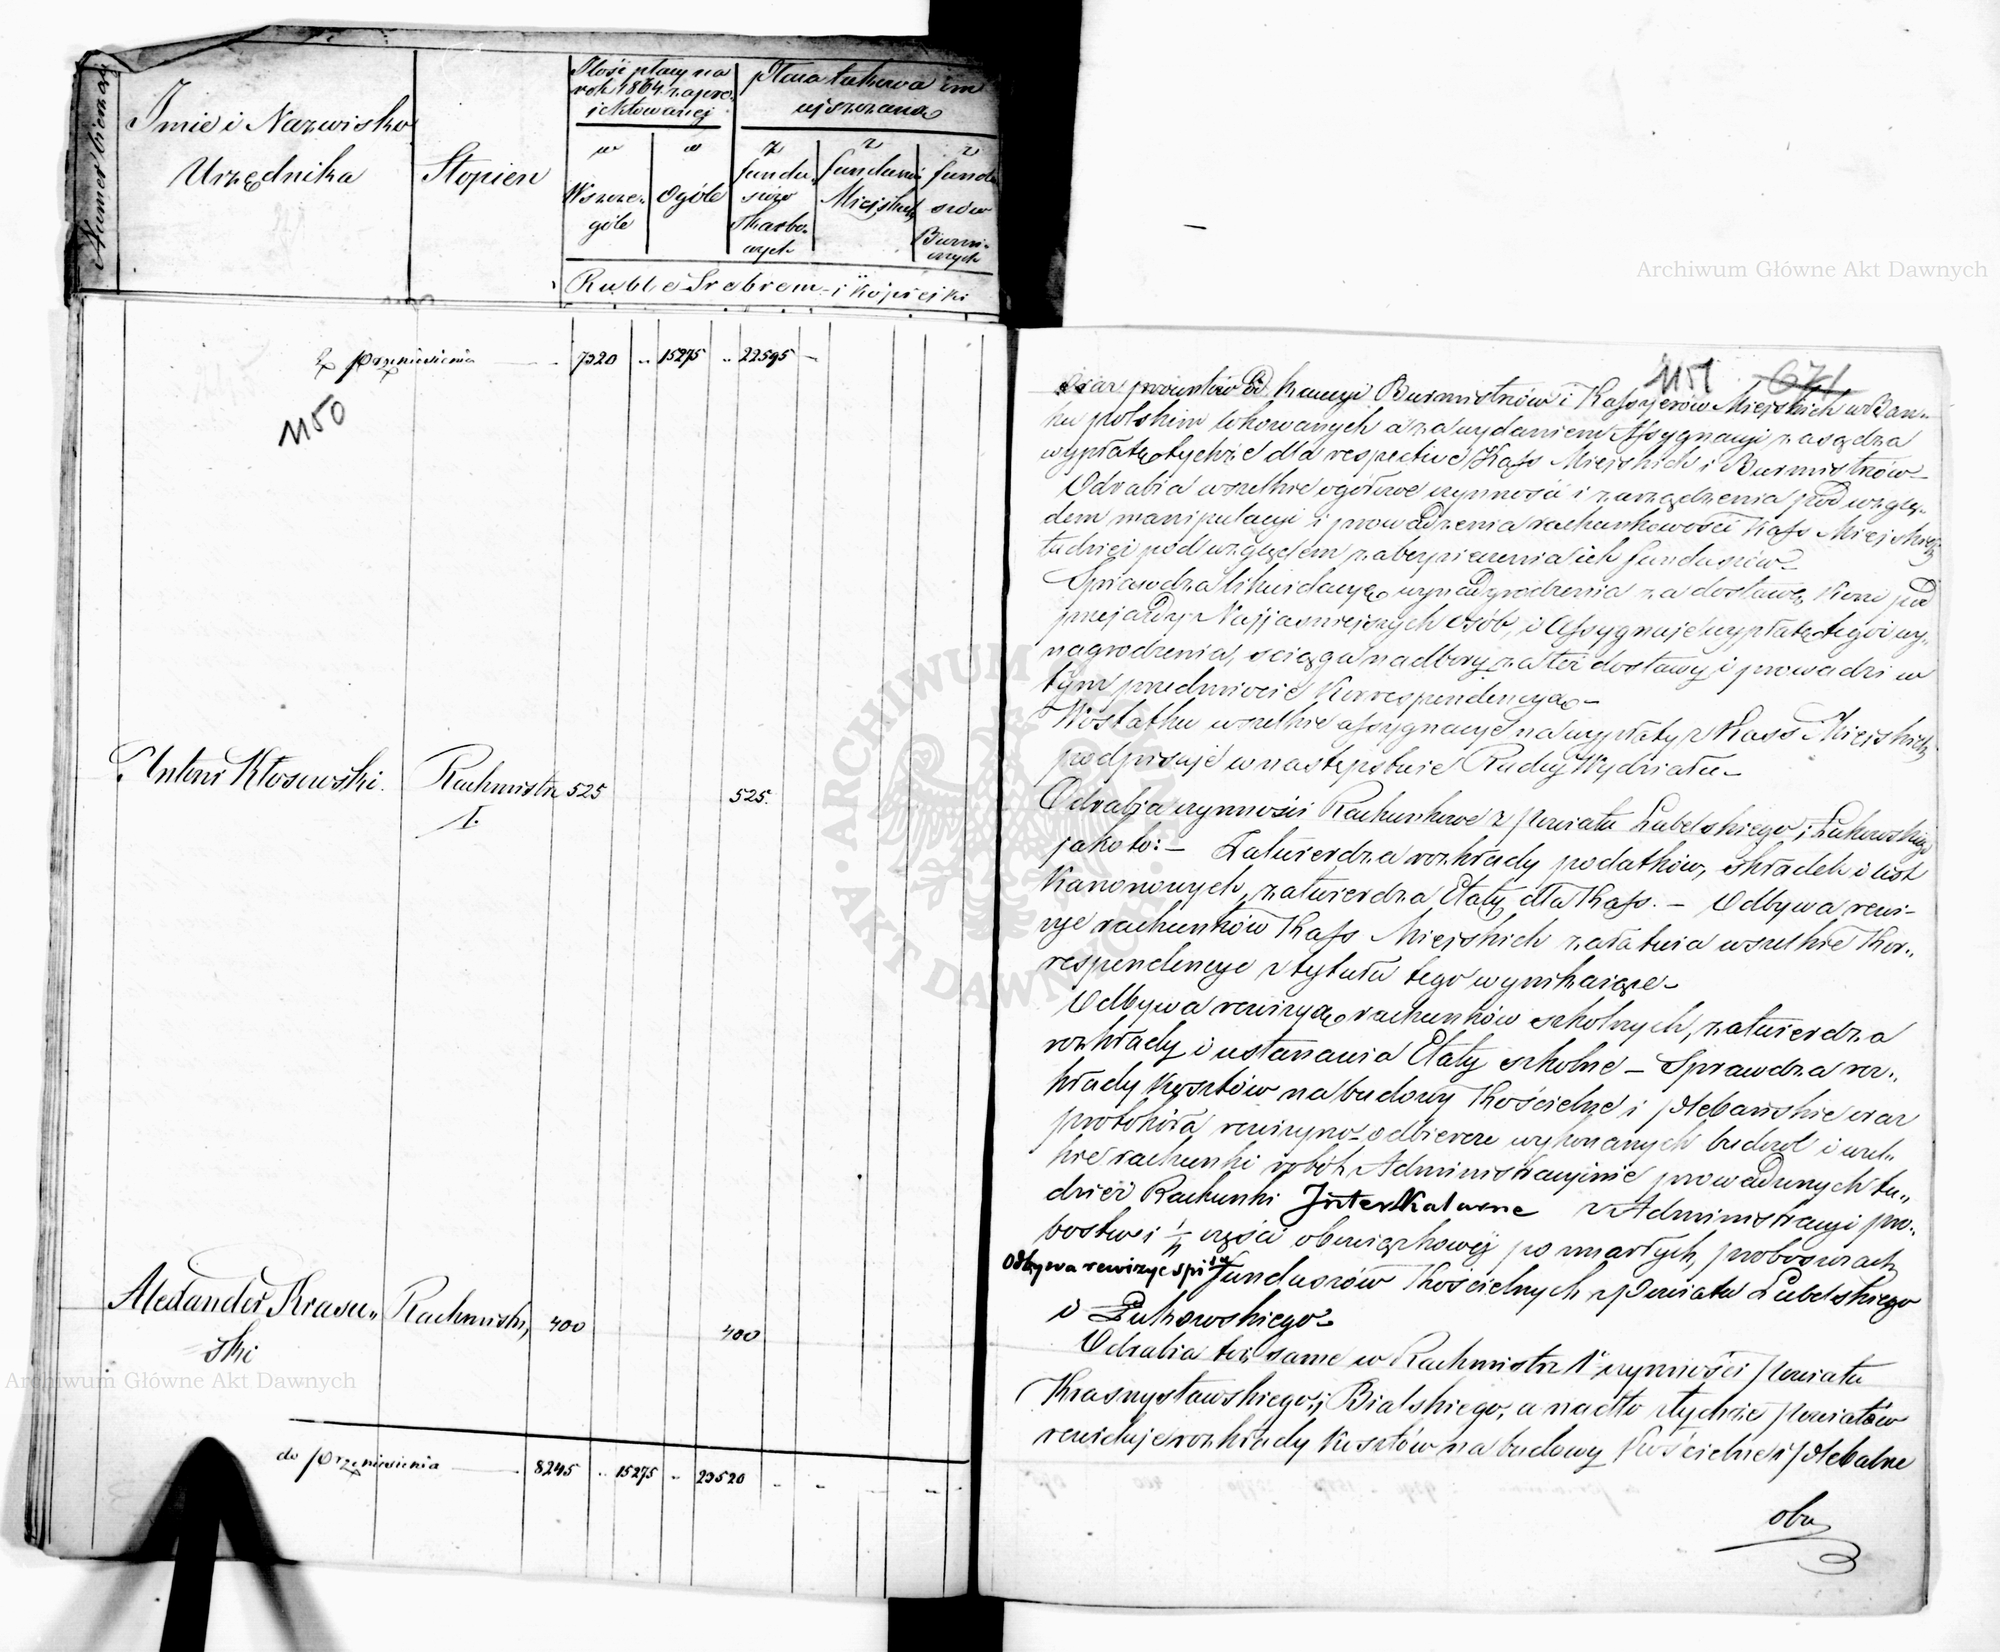 Numer bieżący
Imie i Nazwisko
Urzędnika
Stopień
Ilość płacy na
rok 1864 zapro-
jektowanej
w
Wszcze-
góle
w
Ogóle
Płaca takowa im
uiszczana
z
fundu-
szów
Skarbo-
wych
z
funduszów
Miejskich
z
fundu-
szów
Biurni-
cznych
Ruble Srebrem i kopiejki
Z przeniesienia 7320 „ 15275 „ 22595 –
1150
Antoni Kłosowski. Rachmistrz 525 525.
I.
Alexander Krasu„ Rachmistrz, 400 400
ski
do przeniesienia 8245 „ 15275 „ 23520 - - - -
1151 671
oraz procentów od kaucyi Burmistrzów i Kassyerów Miejskich w Ban„
ku polskim lokowanych a za wydaniem Assygnacyi zasądza
wypłatę tychże dla respective Kass Miejskich i Burmistrzów –
Odrabia wszelkie ogółowe czynności i zarządzenia pod wzglę„
dem manipulacyi i prowadzenia rachunkowości Kass Miejskich
tudzież pod względem zabezpieczenia ich funduszów –
Sprawdza likwidacye wynadgrodzenia za dostawę Koni pod
przejazdy Najjaśniejszych Osób, i Assygnuje wypłatę tegoż wy„
nagrodzenia, ściąga nadbory za też dostawy i prowadzi w
tym przedmiocie Korrespondencyą –
W ostatku wszelkie assygnacye na wypłaty z Kass Miejskich
podpisuje w następstwie Radcy Wydziału –
Odrabia czynności Rachunkowe z powiatu Lubelskiego i Łukowskiego
jako to: – Zatwierdza rozkłady podatków, składek i list
Kanonowych, zatwierdza Etaty dla Kass. – Odbywa rewi-
zye rachunków Kass Miejskich załatwia wszelkie Kor„
respondencye z tytułu tego wynikające –
Odbywa rewizyą rachunków szkolnych, zatwierdza
rozkłady i ustanawia Etaty szkolne – Sprawdza roz„
kłady kosztów na budowy Kościelne i plebańskie oraz
protokóła rewizyno-odbiorcze wykonanych budowl i wszel„
kie rachunki robót Administracyjnie prowadzonych tu„
dzież Rachunki InterKalarne z Administracyi pro„
bostw i 1/4 części obowiązkowéj po zmarłych proboszczach
Odbywa rewizye spisów funduszów Kościelnych z Powiatu Lubelskiego
i Łukowskiego –
Odrabia też same co Rachmistrz 1ʳ czynności powiatu
Krasnystawskiego i Bialskiego, a nadto z tychże powiatów
rewiduje rozkłady kosztów na budowy Kościelne i plebalne
oba
Archiwum Główne Akt Dawnych
Archiwum Główne Akt Dawnych
ARCHIWUM GŁÓWNE AKT DAWNYCH